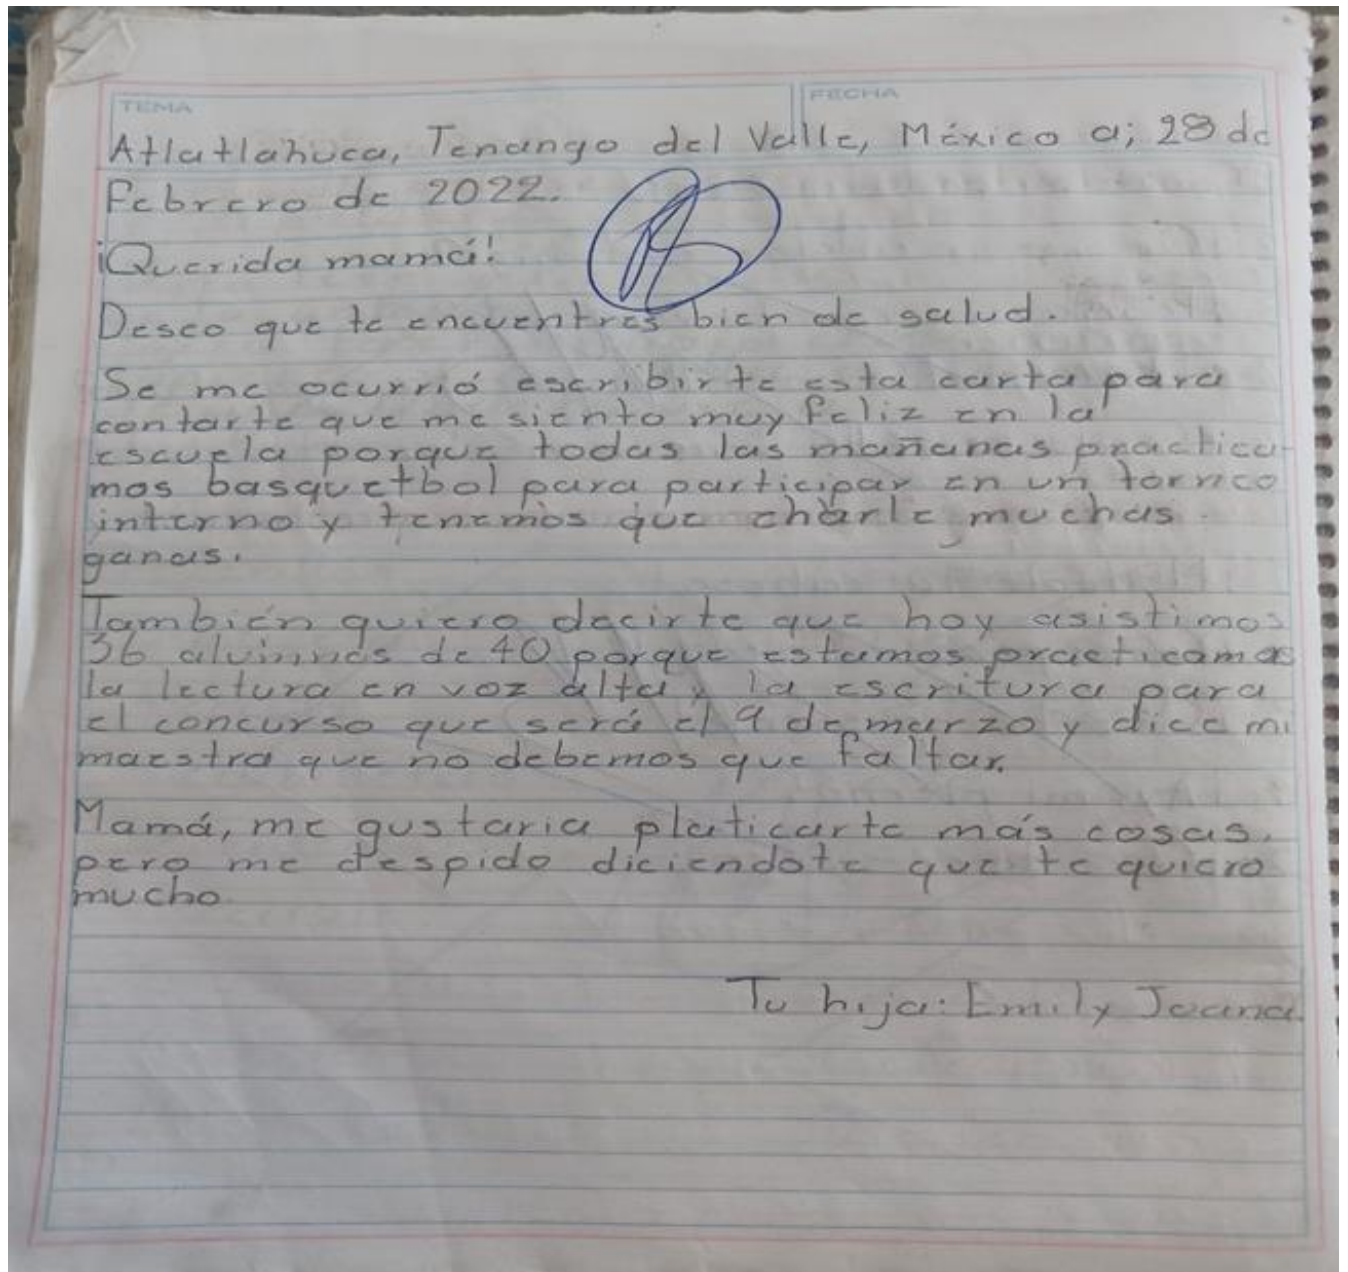 TEMA
FECHA
Atlatlahuca, Tenango del Valle, México a; 28 de
Febrero de 2022.
¡Querida mamá!
Deseo que te encuentres bien de salud.
Se me ocurrió escribirte esta carta para
contarte que me siento muy feliz en la
escuela porque todas las mañanas practica-
mos basquetbol para participar en un torneo
interno y tenemos que charle muchas
ganas.
También quiero decirte que hoy asistimos
36 alumnos de 40 porque estamos practicamos
la lectura en voz alta y la escritura para
el concurso que será el 9 de marzo y dice mi
maestra que no debemos que faltar.
Mamá, me gustaria platicarte más cosas.
pero me despido diciendote que te quiero
mucho
Tu hija: Emily Joana.